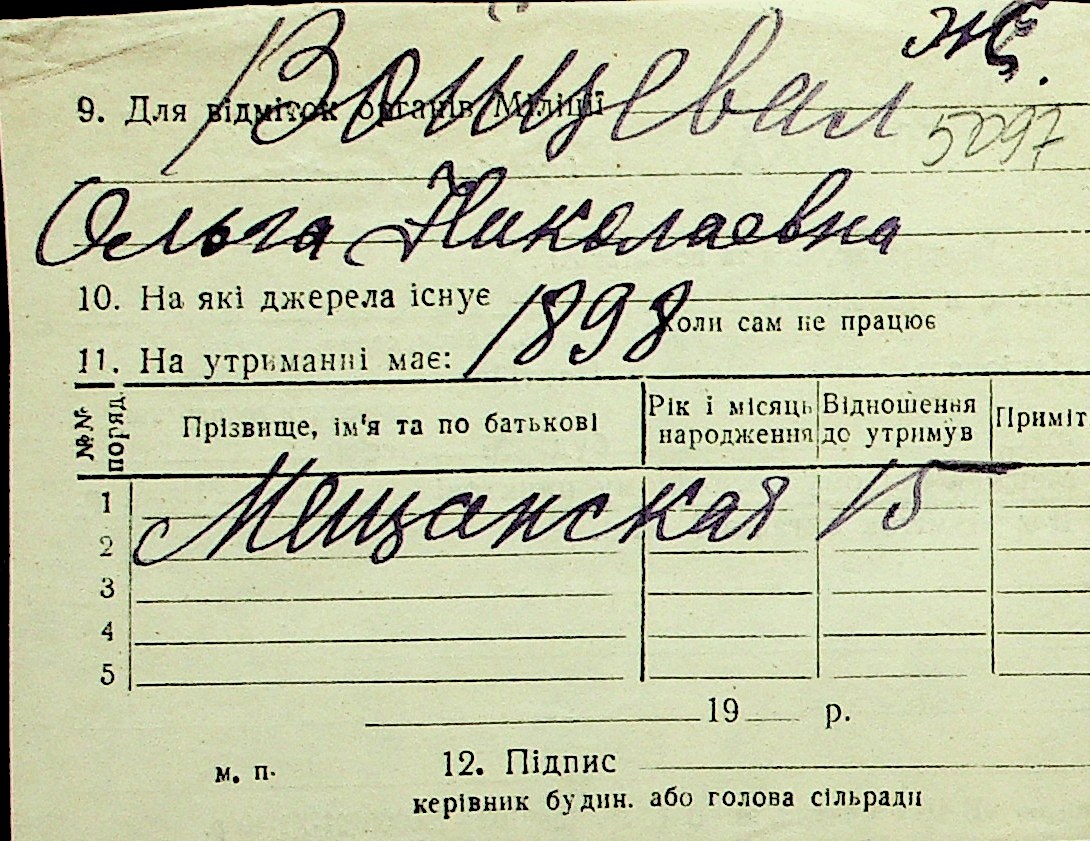 9. Для відміток органів Міліції
5097
Ольга Николаевна
10. На які джерела існує
коли сам не працює
1898
11. На утриманні має:
№№ поряд.
Прізвище, ім'я та по батькові
Рік і місяць народження
Відношення до утримув
Приміт
1
Мещанская 15
2
3
4
5
19 р.
м. п.
12. Підпис
керівник будин. або голова сільради